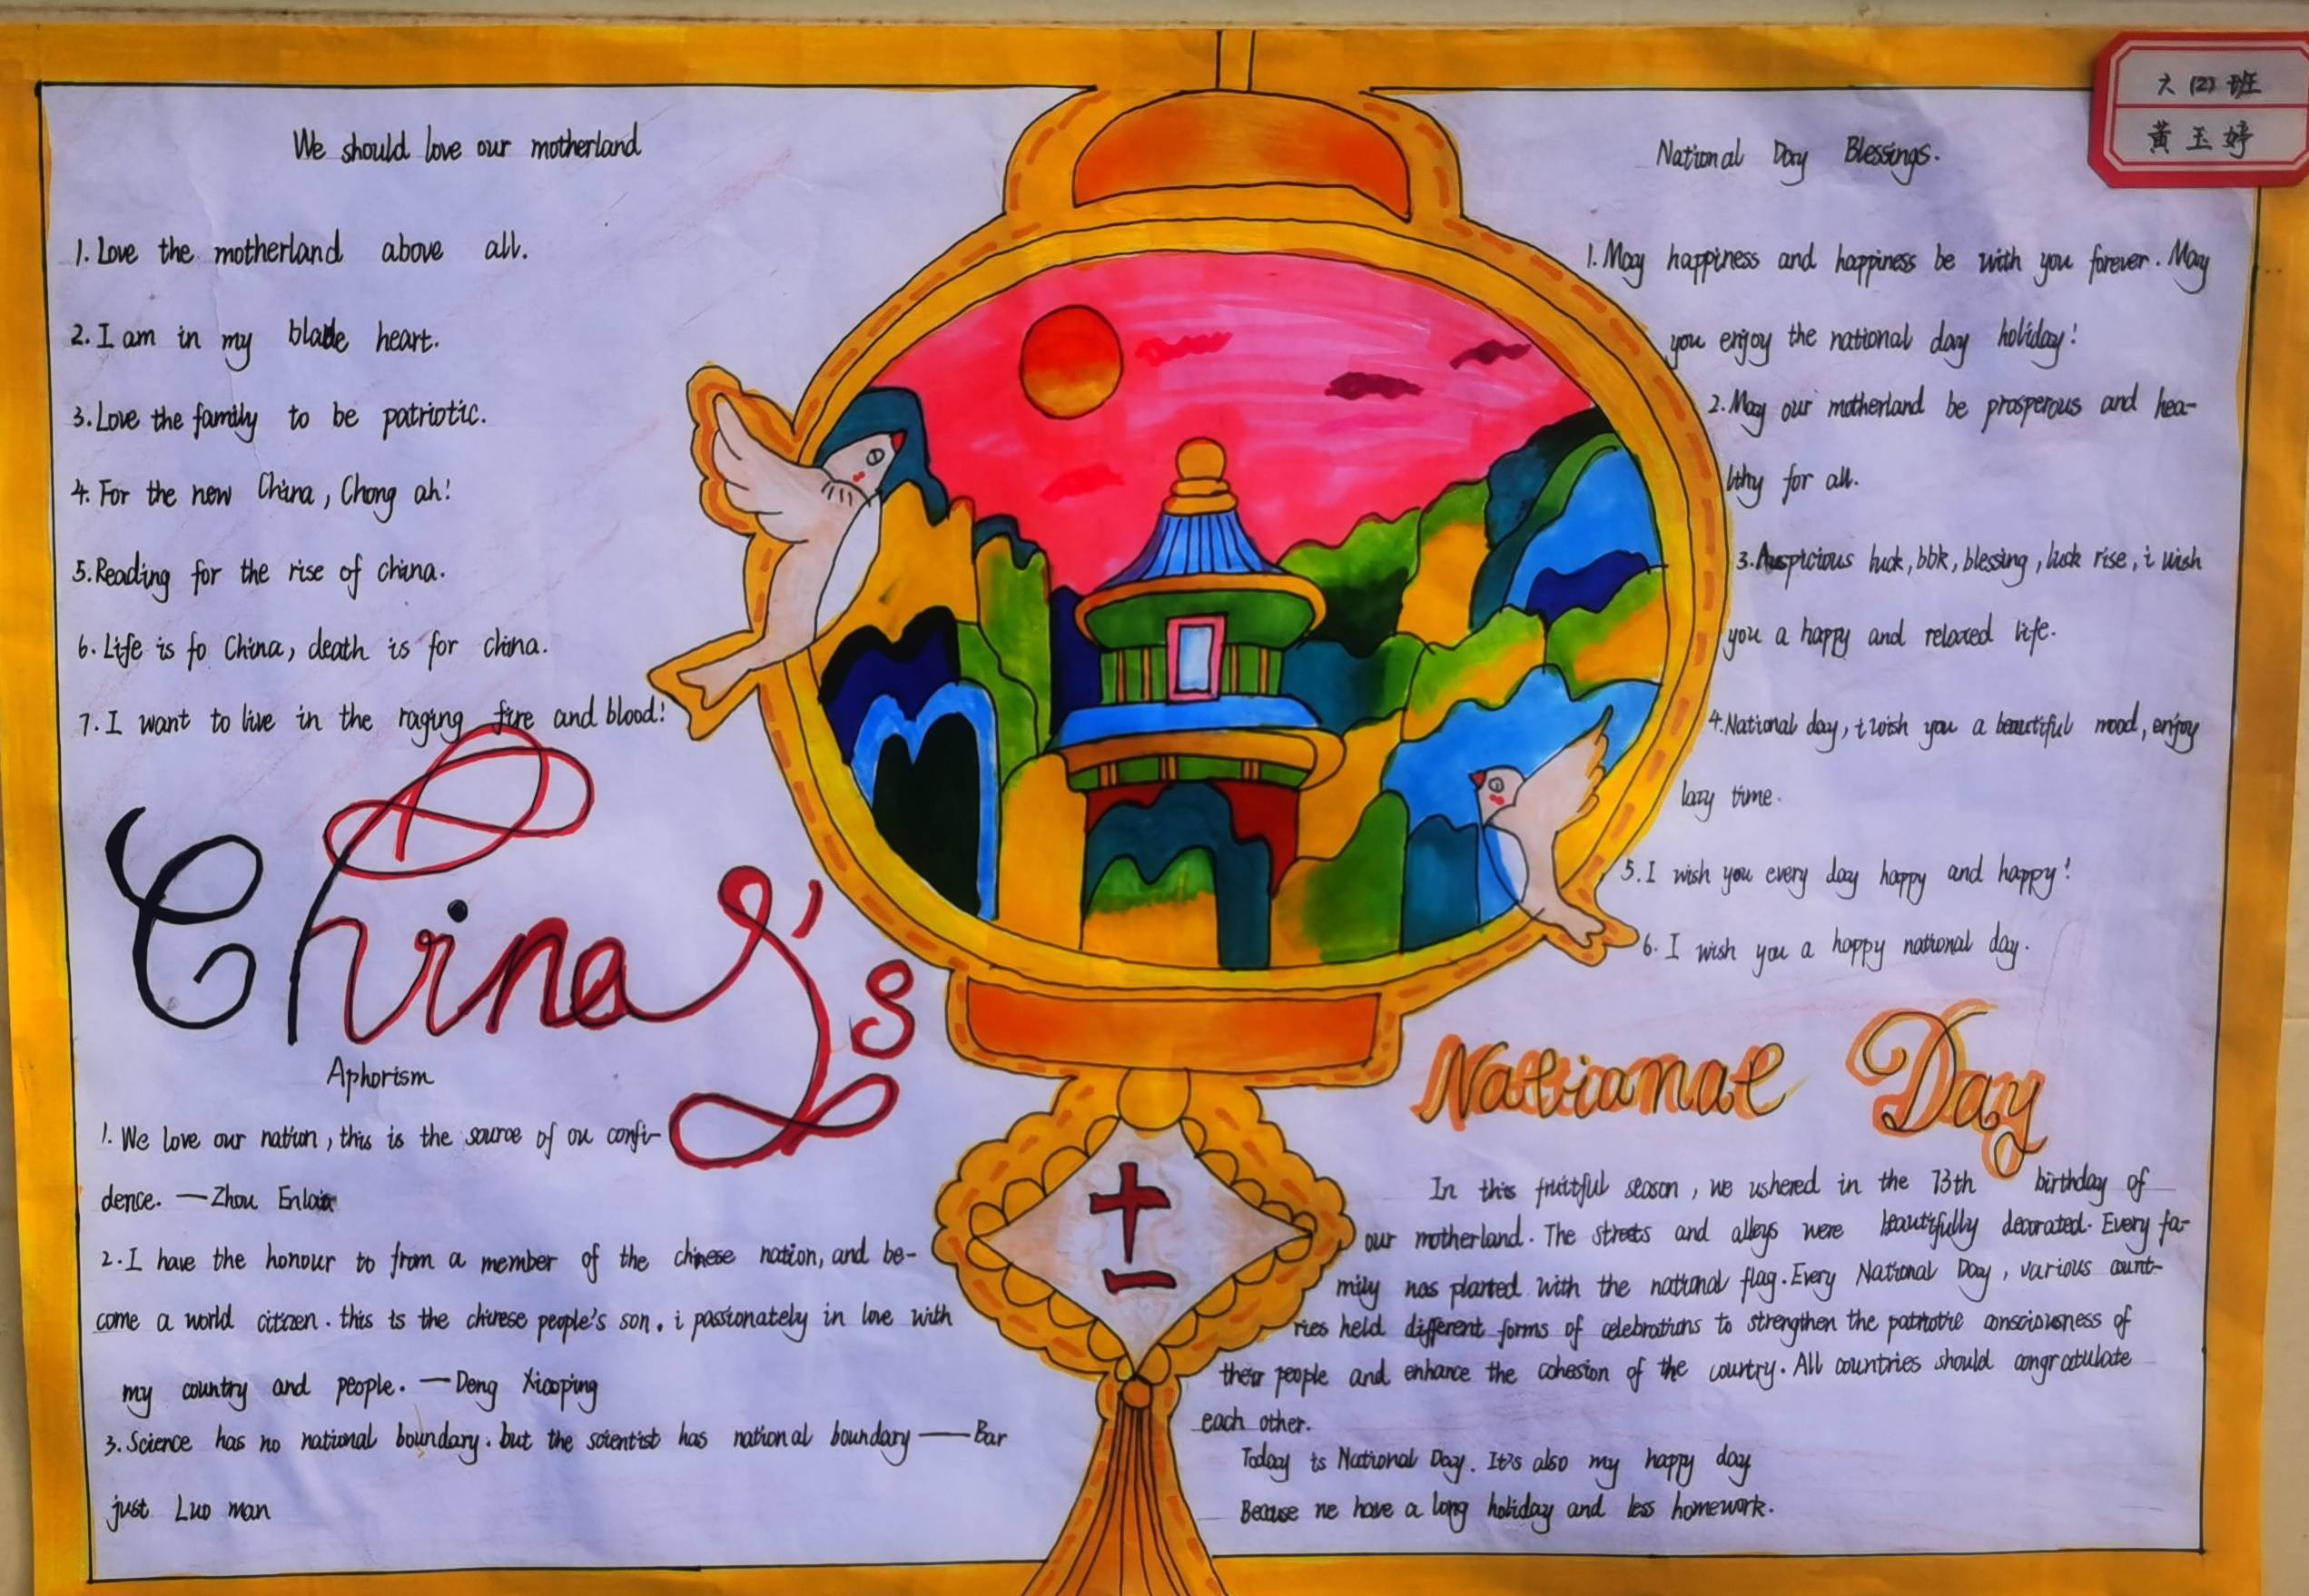 We should love our motherland
1. Love the motherland above all.
2. I am in my blade heart.
3. Love the family to be patriotic.
4. For the new China, Chong ah!
5. Reading for the rise of china.
6. Life is fo China, death is for china.
7. I want to live in the raging fire and blood!
China's
Aphorism
1. We love our nation, this is the source of ou confi-
dence. —Zhou Enlai
2. I have the honour to from a member of the chinese nation, and be-
come a world citizen. this is the chinese people's son. i passionately in love with
my country and people. —Deng Xiaoping
3. Science has no national boundary. but the scientist has national boundary ——Bar
just Luo man
十一
六(2)班
黄玉婷
National Day Blessings.
1. May happiness and happiness be with you forever. May
you enjoy the national day holiday!
2. May our motherland be prosperous and hea-
lthy for all.
3. Auspicious luck, bbk, blessing, luck rise, i wish
you a happy and relaxed life.
4. National day, i wish you a beautiful mood, enjoy
lazy time.
5. I wish you every day happy and happy!
6. I wish you a happy national day.
National Day
In this fruitful season, we ushered in the 73th birthday of
our motherland. The streets and alleys were beautifully decorated. Every fa-
mily has planted with the national flag. Every National Day, various count-
ries held different forms of celebrations to strengthen the patriotic consciousness of
their people and enhance the cohesion of the country. All countries should congratulate
each other.
Today is National Day. It's also my happy day
Because we have a long holiday and less homework.